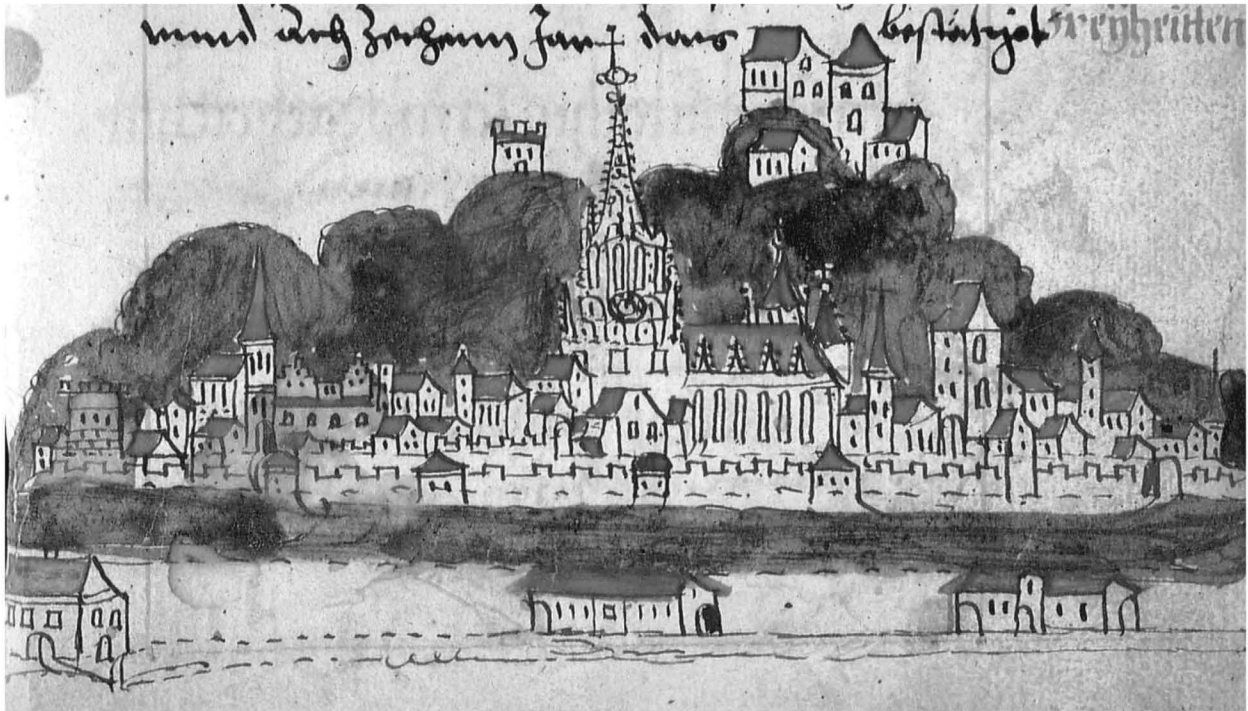 unnd Ach Zechenn Jar bestätiget Freyheitten